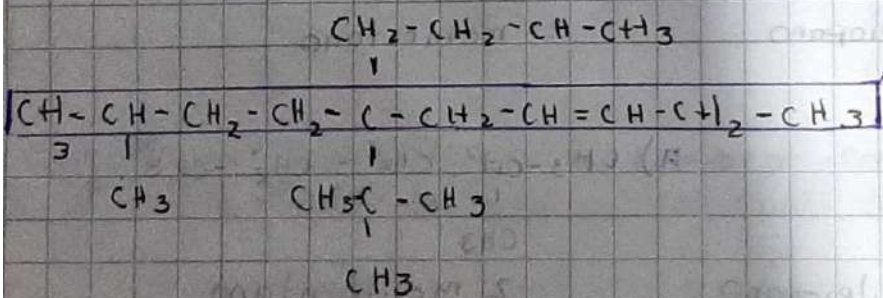 CH2-CH2-CH-CH3
CH-CH-CH2-CH2-C-CH2-CH=CH-CH2-CH3
3
CH3 CH3C-CH3
CH3